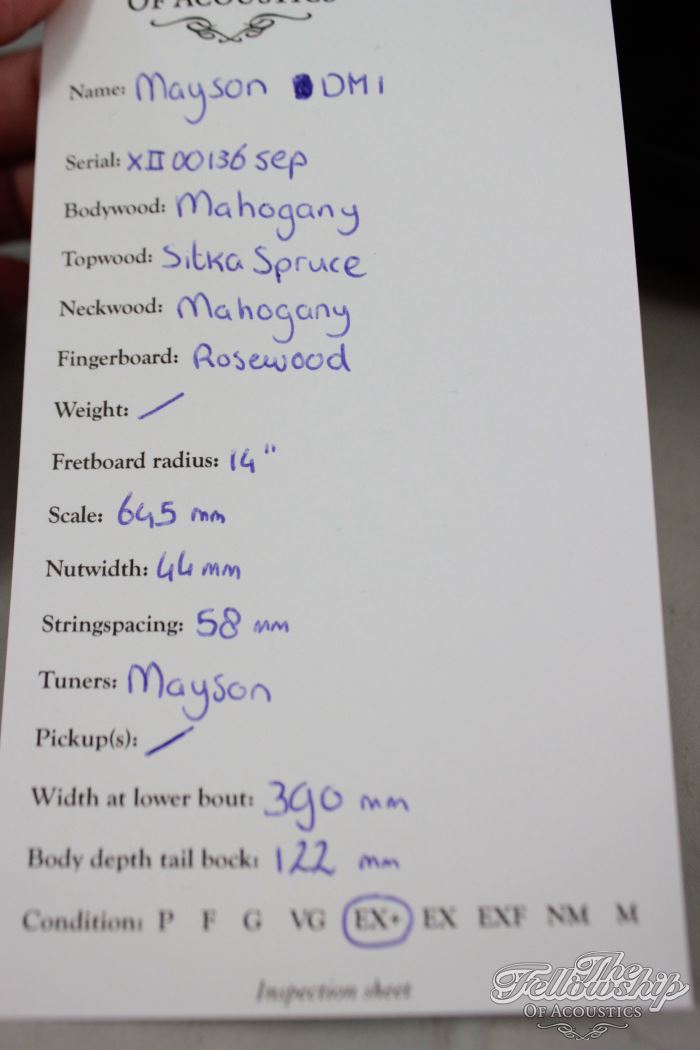 OF ACOUSTICS
Name: Mayson DM1
Serial: XII 00136 sep
Bodywood: Mahogany
Topwood: Sitka Spruce
Neckwood: Mahogany
Fingerboard: Rosewood
Weight: /
Fretboard radius: 14"
Scale: 645 mm
Nutwidth: 44 mm
Stringspacing: 58 mm
Tuners: Mayson
Pickup(s): /
Width at lower bout: 390 mm
Body depth tail bock: 122 mm
Condition: P F G VG EX+ EX EXF NM M
Inspection sheet
The
Fellowship
OF ACOUSTICS